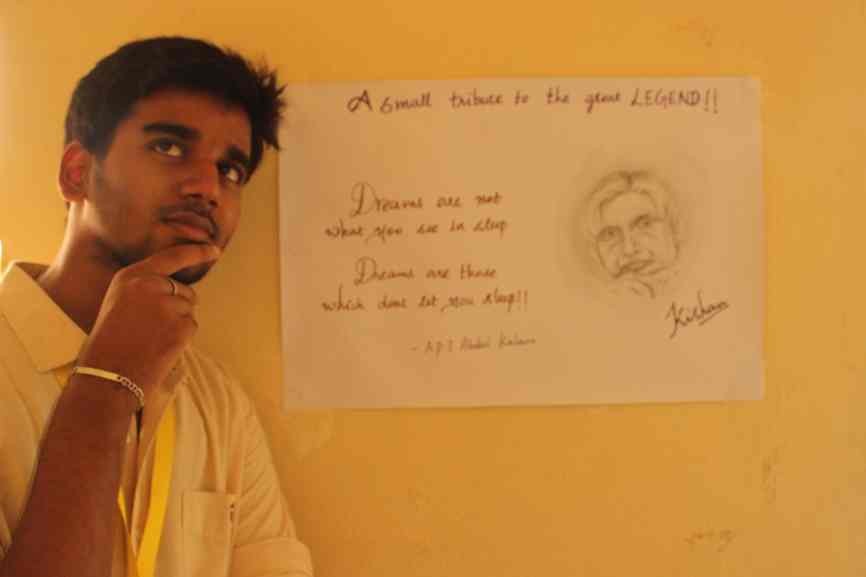 A small tribute to the great LEGEND!!
Dreams are not
what you see in sleep
Dreams are those
which dont let you sleep!!
- A.P.J Abdul Kalam
Kishan